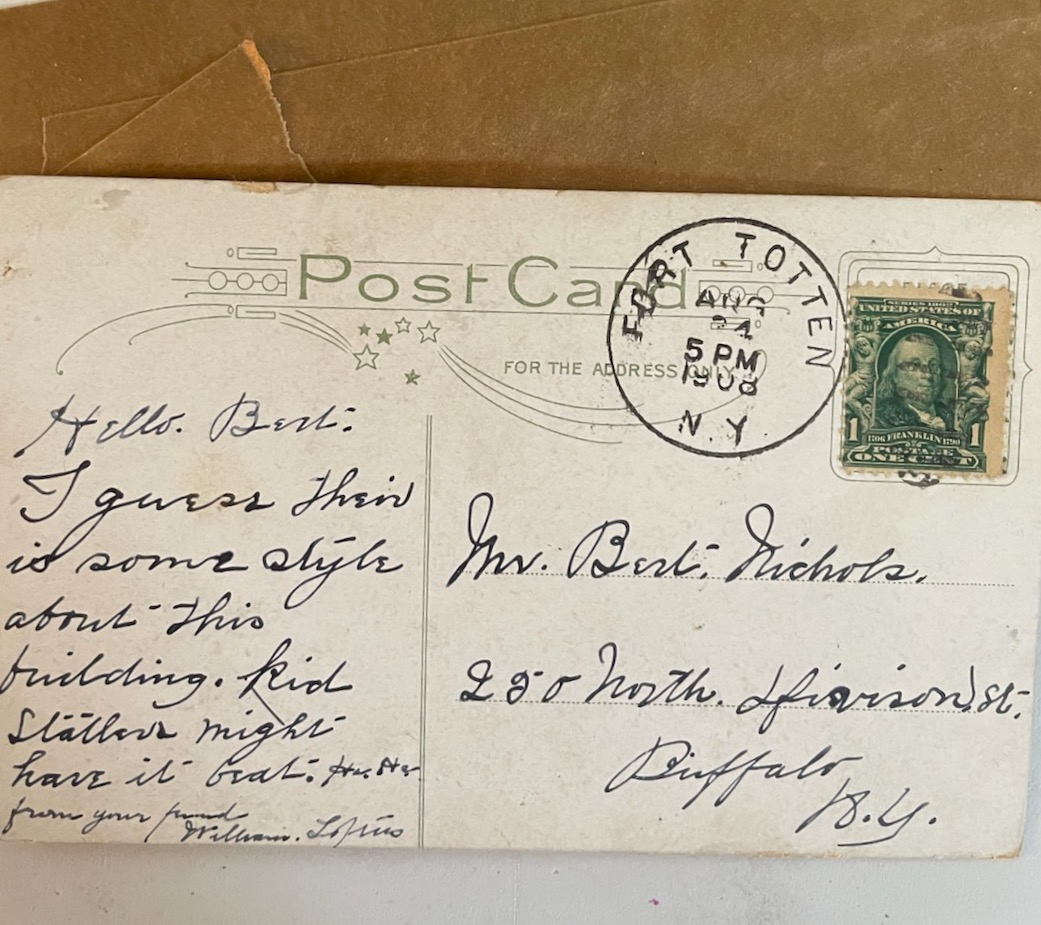 Post Card
FOR THE ADDRESS ONLY
FORT TOTTEN
AUG
24
5 PM
1908
N.Y
SERIES 1902
UNITED STATES OF
AMERICA
1 1706 FRANKLIN 1790 1
POSTAGE
ONE CENT
Hello. Bert.
I guess their
is some style
about this
building. Kid
Statlers might
have it beat. Ha. Ha.
from your friend
William. Loftus
Mr. Bert. Nichols.
250 North. Division. St.
Buffalo
N.Y.